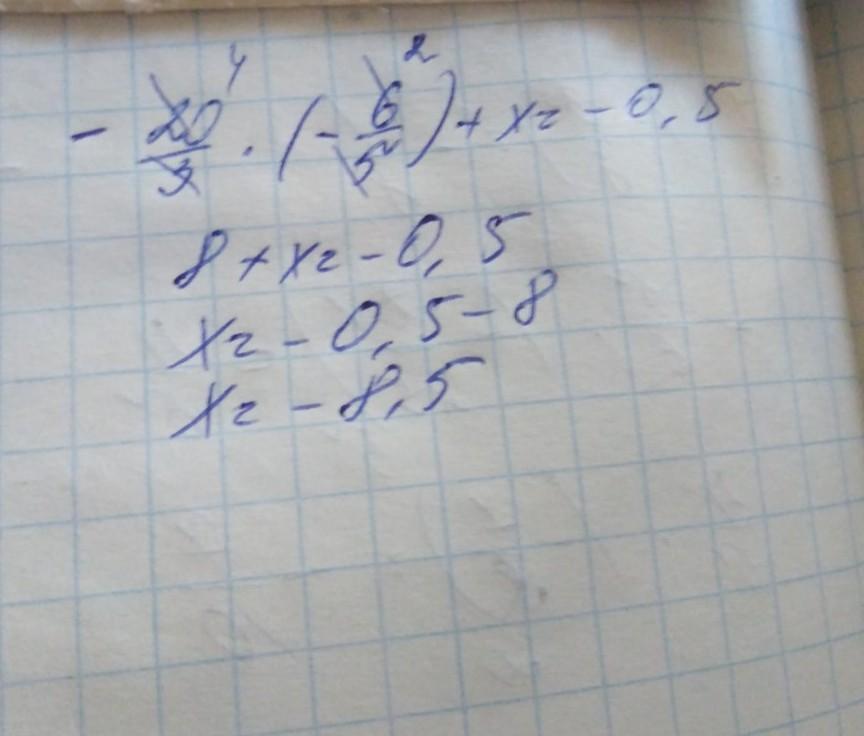 - 20/3 ⁴ · (- 6/5 ²) + x = - 0,5
8 + x = - 0,5
x = - 0,5 - 8
x = - 8,5